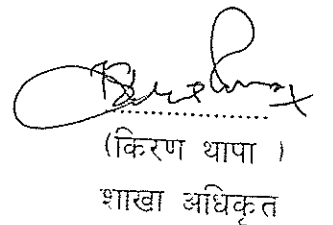 ....................
(किरण थापा )
शाखा अधिकृत